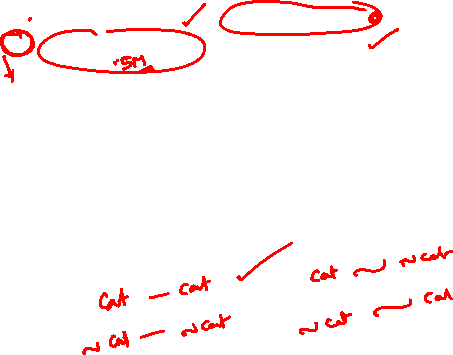 .5M
cat — cat
~ cat — ~ cat
cat ~ ~ cat
~ cat ~ cat